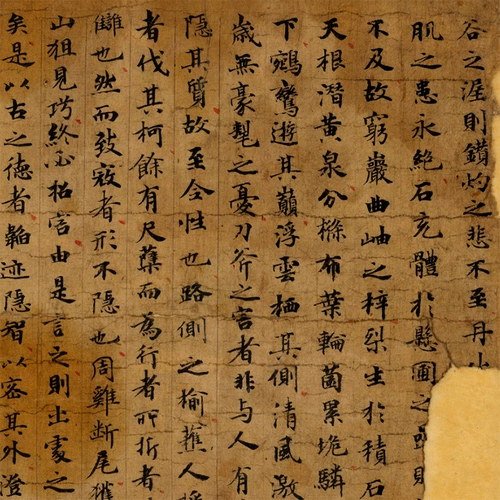 谷之涯則鑽灼之悲不至丹山
肌之患永絕石亢體於懸圃之
不及故窮巖曲岫之梓梨生於積石
天根潛黃泉分樤布葉輪菌累塊驎
下鵷鸞遊其巔浮雲栖其側清風激
歲無豪氂之憂刀斧之害者非与人有
隱其質故至全性也路側之榆蕉人
者伐其柯餘有尺蘖而為行者所折者
讎也然而致寇者形不隱也周雞斷尾獲
山狙見巧終必招害由是言之則出處之
矣是以古之德者韜迹隱智以密其外澄